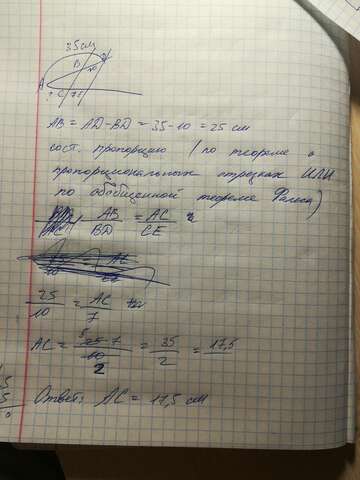 35 см
B D
10
A
? C 7 E
AB = AD - BD = 35 - 10 = 25 см
сост. пропорцию (по теореме о
пропорциональных отрезках ИЛИ
по обобщенной теореме Фалеса)
AB/BD = AC/CE
25/10 = AC/7
AC = 25·7/10 = 35/2 = 17,5
5
2
Ответ: AC = 17,5 см